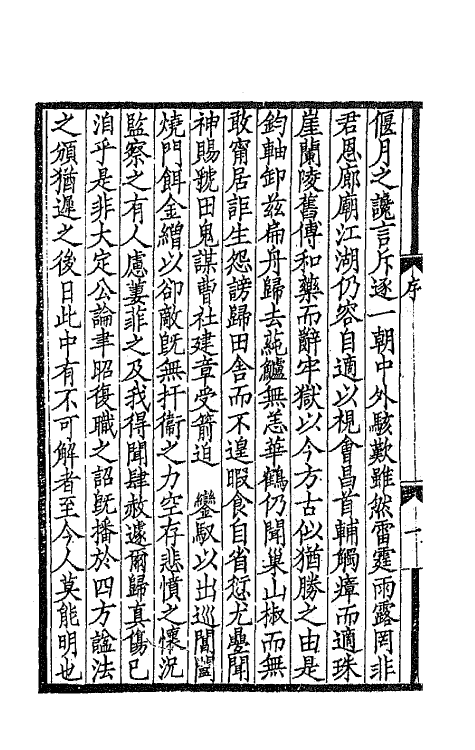 偃月之讒言斥逐一朝中外駭歎雖然雷霆雨露罔非
君恩廊廟江湖仍容自適以視會昌首輔觸瘴而適珠
崖蘭陵舊傅和藥而辭牢獄以今方古似猶勝之由是
鈞軸卸兹扁舟歸去蒓鱸無恙華鶴仍聞巢山椒而無
敢甯居詎生怨謗歸田舍而不遑暇食自省愆尤㬥聞
神賜虢田鬼謀曹社建章受箭迫 鑾馭以出巡閶闔
燒門餌金繒以卻敵既無扞衞之力空存悲憤之懷況
監察之有人慮萋菲之及我得聞肆赦遽爾歸真傷已
洎乎是非大定公論聿昭復職之詔既播於四方諡法
之頒猶遲之後日此中有不可解者至今人莫能明也
序
一